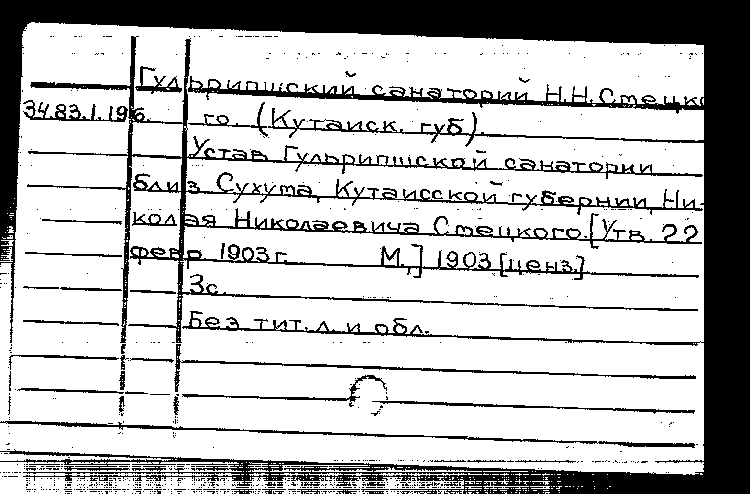 Гульрипшский санаторий Н.Н. Смецко
34.83.1.196. го. (Кутаиск. губ).
Устав Гульрипшской санатории
близ Сухума, Кутаисской губернии, Ни-
колая Николаевича Смецкого. [Утв. 22
февр 1903 г. М.,] 1903 [ценз.]
3с.
Без тит. л. и обл.